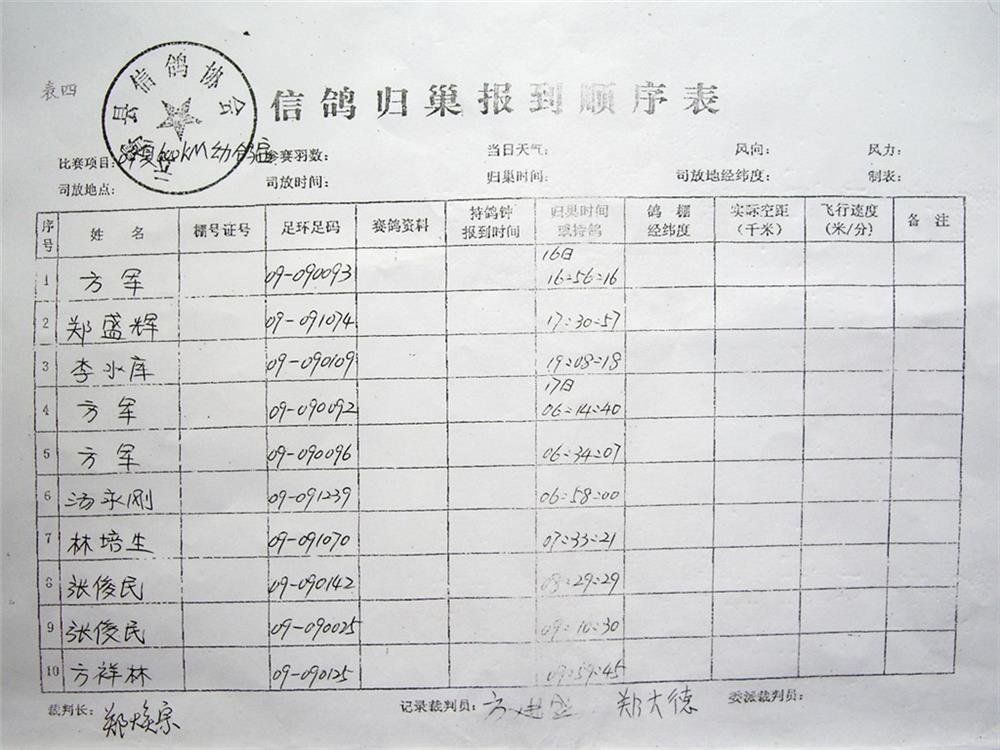 表四
县信鸽协会
信鸽归巢报到顺序表
当日天气: 风向: 风力:
比赛项目: 600KM幼鸽 参赛羽数:
司放地点: 司放时间: 归巢时间: 司放地经纬度: 制表:
序号 姓 名 棚号证号 足环足码 赛鸽资料 持鸽钟报到时间 归巢时间或持鸽 鸽 棚经纬度 实际空距(千米) 飞行速度(米/分) 备 注
16日
1 方军 09-090093 16:56:16
2 郑盛辉 09-091074 17:30:57
3 李水库 09-090109 19:08:18
17日
4 方军 09-090092 06:14:40
5 方军 09-090096 06:34:07
6 汤永刚 09-091239 06:58:00
7 林培生 09-091070 07:33:21
8 张俊民 09-090142 08:29:29
9 张俊民 09-090025 09:10:30
10 方祥林 09-090125 09:59:45
裁判长: 郑焕宗 记录裁判员: 方 郑大德 委派裁判员: